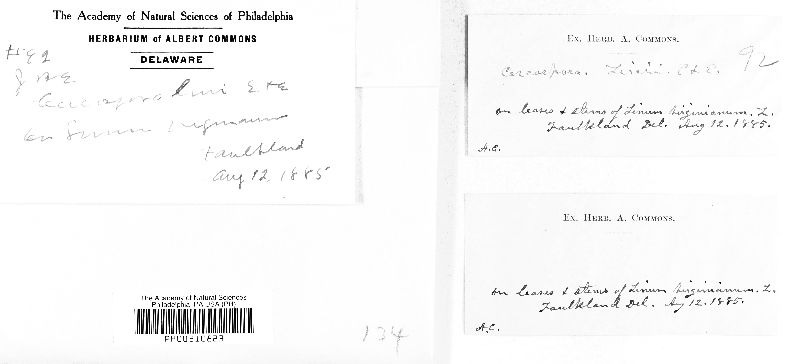 The Academy of Natural Sciences of Philadelphia
HERBARIUM of ALBERT COMMONS
DELAWARE
#92
Cercospora Lini E & E
on Linum virginianum
Faulkland
Aug 12 1885
The Academy of Natural Sciences
Philadelphia, PA USA (PH)
134
EX. HERB. A. COMMONS.
92
Cercospora. Linii. E & E.
on leaves & stems of Linum Virginianum. L.
Faulkland Del. Aug 12. 1885.
A.C.
EX. HERB. A. COMMONS.
on leaves & stems of Linum Virginianum. L.
Faulkland Del. Ag 12. 1885.
A.C.